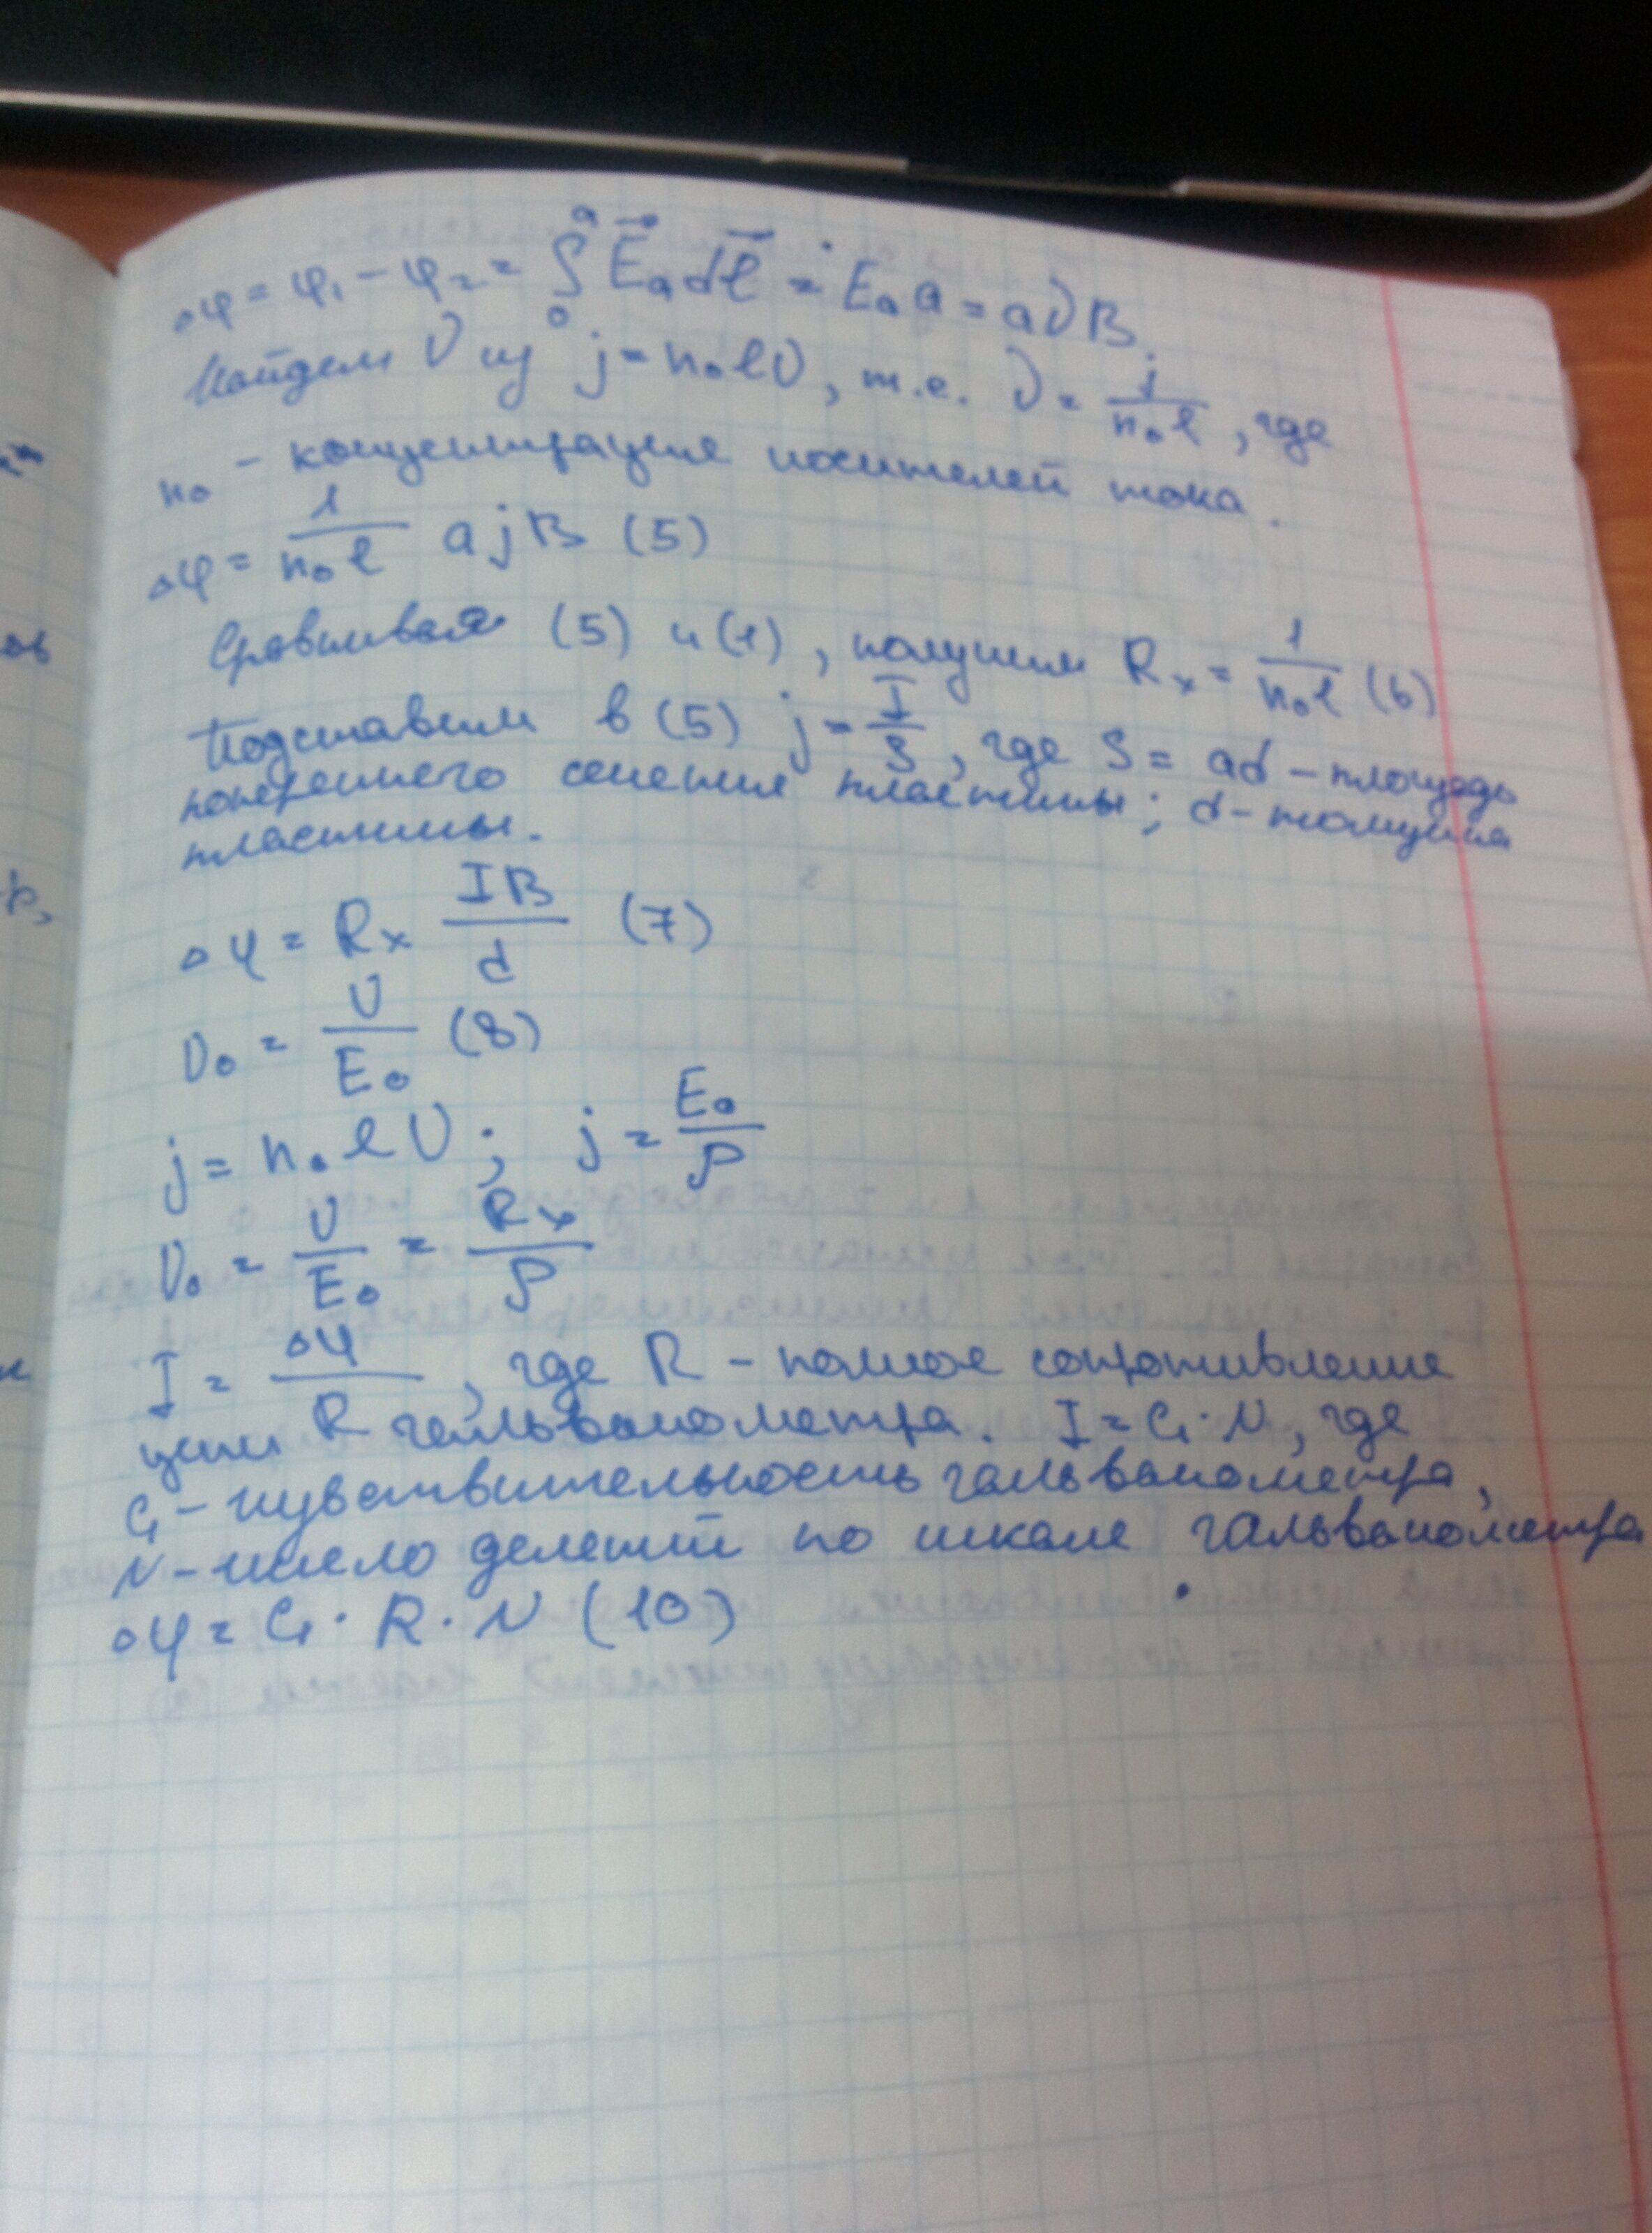 Δφ = φ₁ - φ₂ = ∫₀ᵃ E⃗ₐ dl⃗ = Eₐ a = aυB.
Найдем υ из j = n₀eυ, т.е. υ = j/(n₀e), где
n₀ - концентрация носителей тока.
Δφ = 1/(n₀e) ajB (5)
Сравнивая (5) и (1), получим Rₓ = 1/(n₀e) (6)
Подставим в (5) j = I/S, где S = ad - площадь
поперечного сечения пластины; d - толщина
пластины.
Δφ = Rₓ IB/d (7)
υ₀ = υ/E₀ (8)
j = n₀eυ; j = E₀/ρ
υ₀ = υ/E₀ = Rₓ/ρ
I = Δφ/R, где R - полное сопротивление
цепи гальванометра. I = C₁·N, где
C₁ - чувствительность гальванометра,
N - число делений по шкале гальванометра
Δφ = C₁·R·N (10)